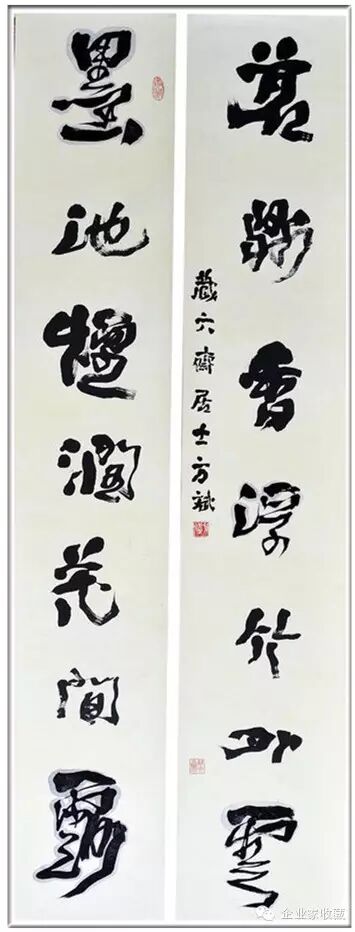 香浮竹外雲
墨池煙潤花間露
藏六齋居士方斌
企业家收藏